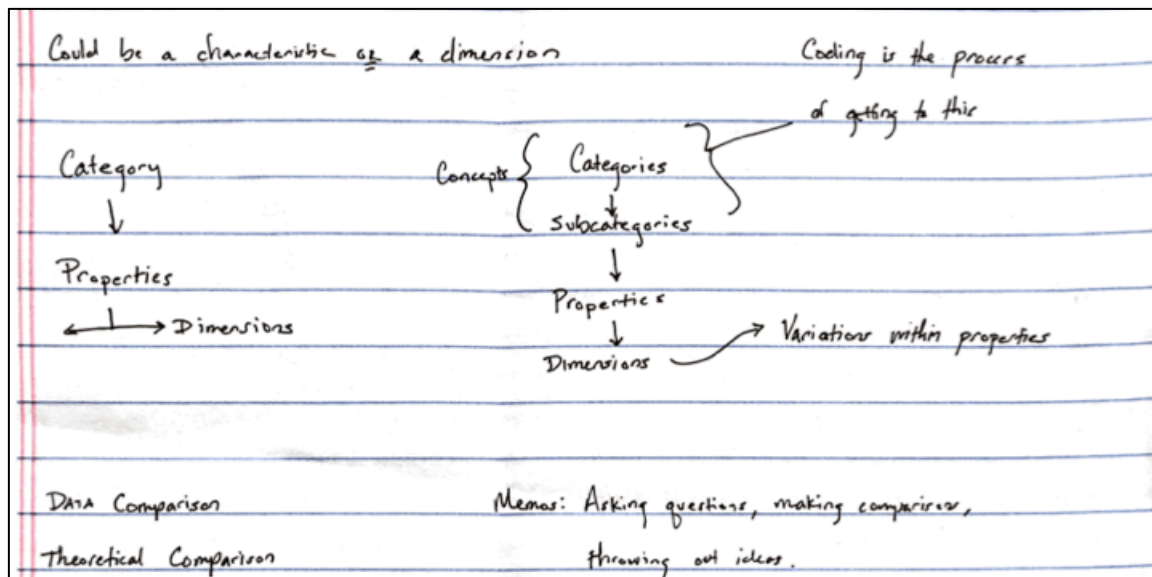 Could be a characteristic or a dimension
Coding is the process
of getting to this
Category
Properties
Dimensions
Concepts
Categories
Subcategories
Properties
Dimensions
Variations within properties
DATA Comparison
Theoretical Comparison
Memos: Asking questions, making comparison,
throwing out ideas.